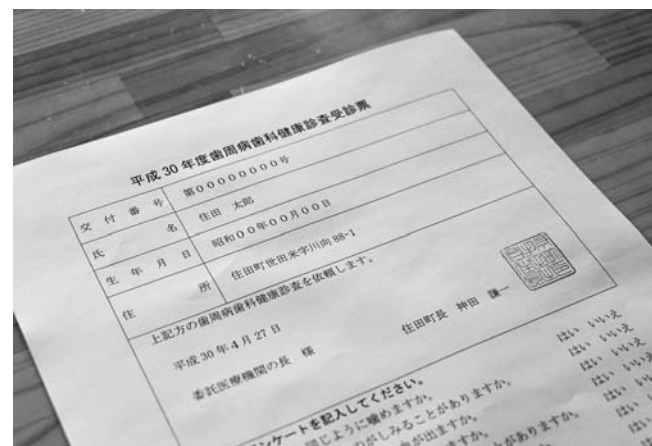 平成30年度歯周病歯科健康診査受診票
交付番号 第00000000号
氏名 住田 太郎
生年月日 昭和00年00月00日
住所 住田町世田米字川向88-1
上記方の歯周病歯科健康診査を依頼します。
平成30年4月27日
住田町長 神田 謙一
委託医療機関の長 様
ンケートを記入してください。
同じように噛めますか。 はい いいえ
のがしみることがありますか。 はい いいえ
が出ますか。 はい いいえ
ことがありますか。 はい
はい